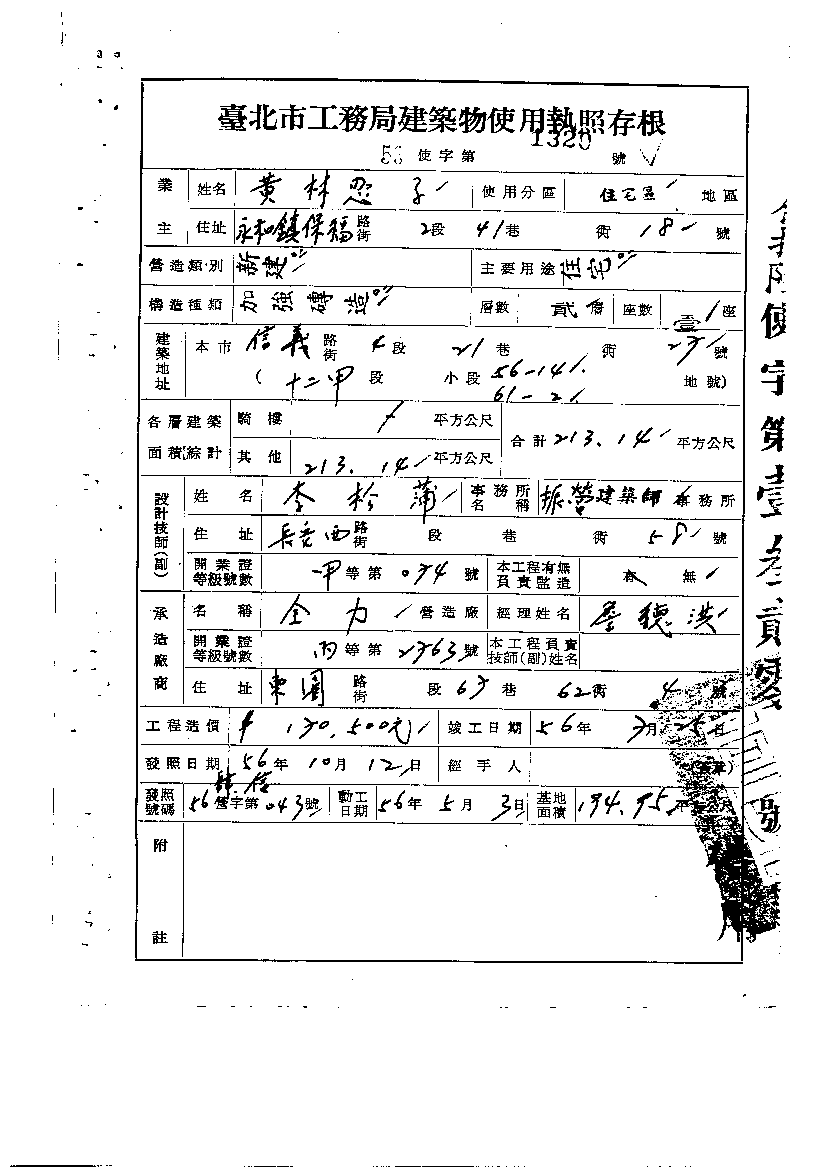 臺北市工務局建築物使用執照存根
56 使字第 1320 號
業主 姓名 黃林 子 使用分區 住宅區 地區
住址 永和鎮保福 路街 2段 41巷 街 18 號
營造類別 新建 主要用途 住宅
構造種類 加強磚造 層數 貳層 座數 壹 座
建築地址 本市 信義 路街 4段 21巷 街 號
( 十二甲 段 小段 56-14 61-2 地號)
各層建築面積綜計 騎樓 平方公尺 合計 213.14 平方公尺
其他 213.14 平方公尺
設計技師(副) 姓名 李 蒲 事務所名稱 振營建築師事務所
住址 長安西 路街 段 巷 街 58 號
開業證等級號數 甲等第 號 本工程有無負責監造 有 無
承造廠商 名稱 全力 營造廠 經理姓名 詹德洪
開業證等級號數 丙等第 號 本工程負責技師(副)姓名
住址 東園 路街 段 巷 62街 4 號
工程造價 竣工日期 56年 月 25日
發照日期 56年 10月 12日 經手人
發照號碼 56 營字第 043號 動工日期 56年 5月 3日 基地面積 194.95
附註
使字第壹叁貳零號